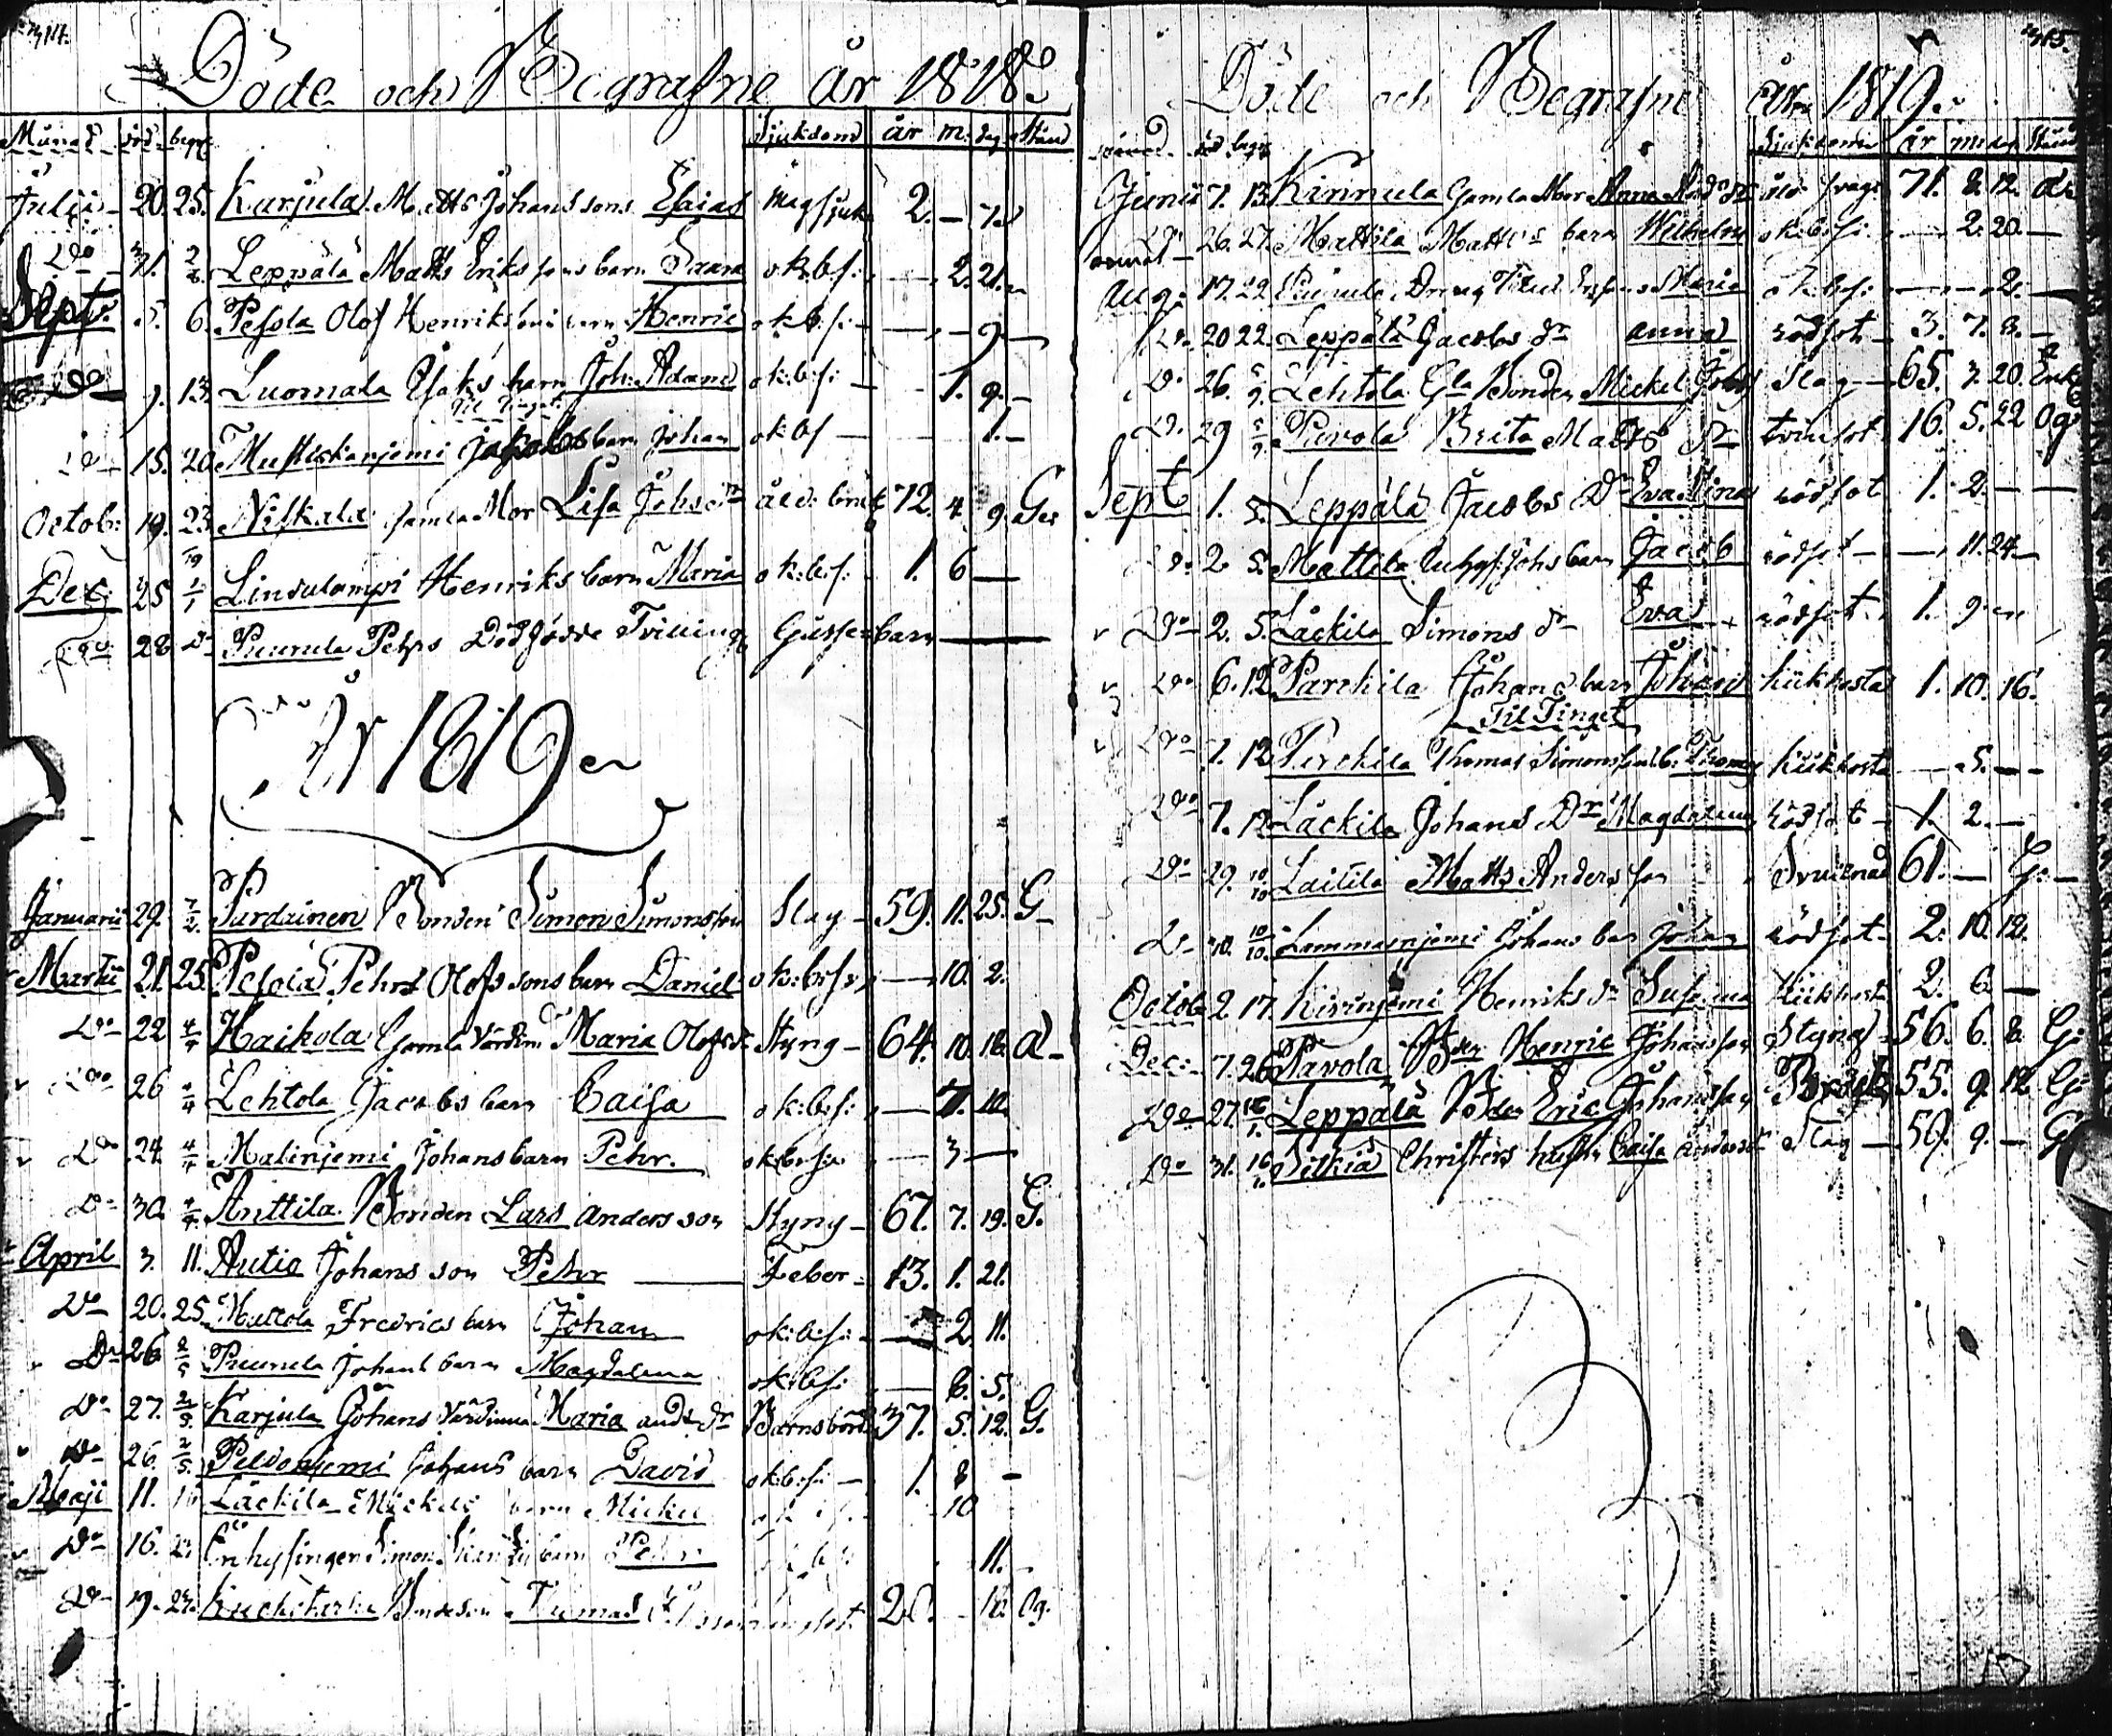 314.
Döde och Begrafne år 1818.
Månad död begr. Sjukdom år m. dag. Stånd
Julii 20. 25. Karjula Matts Johanssons Esaias Magsjuk 2. — 7.
Do 31. 2/8. Leppälä Matts Erikssons barn okb.s: — 2. 21.
Sept. 5. 6. Pesola Olof Henrikssons barn Henric okb.s: — — 9. —
Do 9. 13. Luomala Esaks barn Joh: Adam okb.s: — 1. 9. —
Til Tinget
Do 15. 20. Johan okbs — 1. —
Octob: 19. 23. Niskala gamla Mor Lisa Johsdr 72. 4. 9. G
Dec: 25 1/1 Linsulampi Henriks barn Maria okb.s: 1. 6 —
Do 28. Do Puurula Pehrs Dödfödde Tvilling Gosse-barn —
År 1819
Januarii 29. 7/2. Pardainen Bonden Simon Simonsson Slag 59. 11. 25. G
Martii 21. 25. Pesola Pehrs Olofssons barn Daniel okb.s: — 10. 2.
Do 22 4/4 Haikola Gamla Värdin: Maria Olofsdr Styng 64. 10. 16. a
Do 26 4/4 Lehtola Jacobs barn Caisa okb.s: — 7. 10.
Do 24. 4/4 Malinjemi Johans barn Pehr. okb.s: — 3 —
Do 30. 4/4. Anttila Bonden Lars Andersson Styng 67. 7. 19. G.
April 3. 11. Autio Johansson Pehr — Feber 13. 1. 21.
Do 20. 25. Mattola Fredrics barn Johan okb.s: — 2. 11.
Do 26 2/5 Puurula Johans barn Magdalena okb.s: — 6. 5.
Do 27. 2/5. Karjula Johans Värdinna Maria And: dr Barnsbörd 37. 5. 12. G.
Do 26. 2/5. Peldoniemi Johans barn David okb.s: 1. 8 —
Maji 11. 16 Läckila Mickels barn Mickel 10
Do 16. 23. Enhysingen Simon barn 11.
Do 19. 24. Bondeson Tumas 20. 10. Og.
315.
Döde och Begrafne År 1819.
Månad död begr. Sjukdomen år m: dag Stånd
Junii 7. 13. Kinnula Gamla Mor Anna 71. 8. 12. a
Do 26. 27. Mattila Matts's barn Wilhelm okb.s: — 2. 20. —
Aug: 17. 22 Puurula Dreng Maria okb.s: — — 2. —
Do 20 22. Leppälä Jacobs dr Anna rödsot 3. 7. 8. —
Do 26. 5/9. Lehtola Gla Bonden Mickel Slag 65. 3. 20. Enk
Do 29 5/9. Pavola Brita Matts dr tvinsot 16. 5. 22 Og
Sept 1. 5. Leppälä Jacobs Dr Eva Stina rödsot 1. 2. —
Do 2. 5. Mattila Inhys: Johs barn Jacob rödsot — 11. 24. —
Do 2. 5. Läckila Simons dr Eva rödsot 1. 9
Do 6. 12 Parckila Johans barn Johan kikhosta 1. 10. 16.
Til Tinget
Do 7. 12 Perckila Thomas Simonssons b: Thomas kikhosta — 5. —
Do 7. 12 Läckila Johans Dr Magdalena rödsot 1. 2. —
Do 29. 10/10 Laitila Matts Andersson 61. — G.
Do 30. 10/10. Lammasniemi Johans barn Johan rödsot 2. 10. 12.
Octob 2 17. Kiviniemi Henriks dr Susanna kikhosta 2. 6 —
Dec: 7. 26 Pavola Bden Henric Johansson Styng 56. 6. 8. G:
Do 27. 16/1. Leppälä Bden Eric Johansson Bråck 55. 9. 12. G
Do 31. 16/1. Christers hustru Caisa Andersdr Slag 59. 9. — G